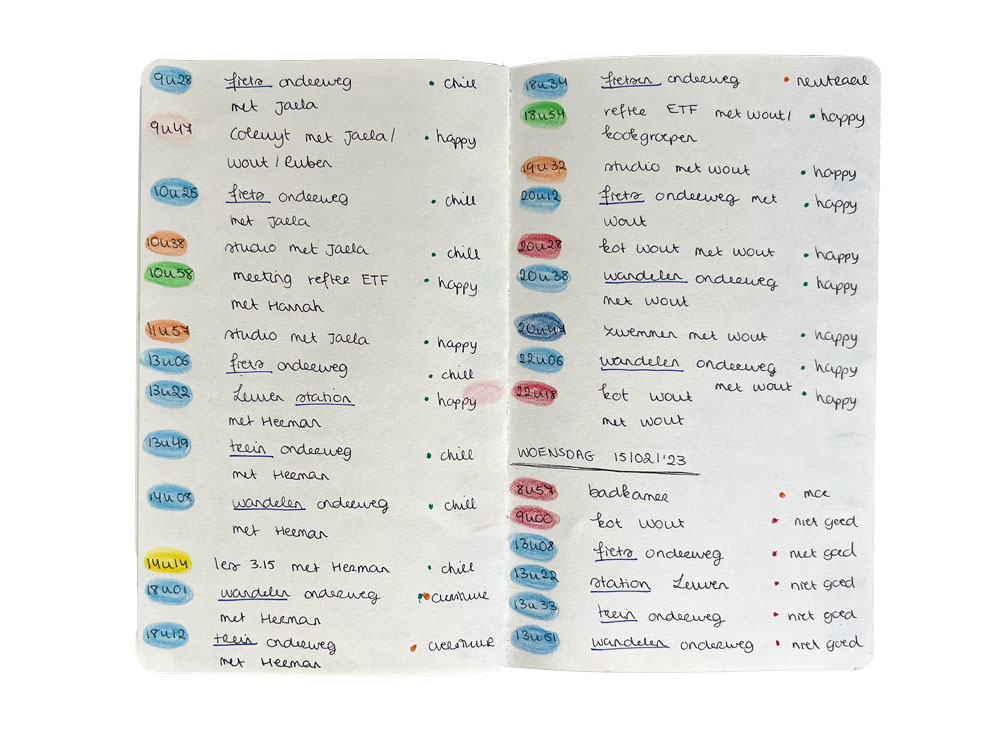 9u28 fiets onderweg • chill
met Jaela
9u47 Coleuyt met Jaela/ • happy
wout / Ruben
10u25 fiets onderweg • chill
met Jaela
10u38 studio met Jaela • chill
10u58 meeting reftee ETF • happy
met Hannah
11u57 studio met Jaela • happy
13u06 fiets onderweg • chill
13u22 Leuven station • happy
met Herman
13u49 trein onderweg • chill
met Herman
14u08 wandelen onderweg • chill
met Herman
14u14 les 3.15 met Herman • chill
18u01 wandelen onderweg •
met Herman
18u12 trein onderweg •
met Herman
18u34 fietsen onderweg • neutraal
18u54 reftee ETF met wout/ • happy
kookgroepen
19u32 studio met wout • happy
20u12 fiets onderweg met • happy
wout
20u28 kot wout met wout • happy
20u38 wandelen onderweg • happy
met wout
20u47 zwemmen met wout • happy
22u06 wandelen onderweg • happy
met wout
22u18 kot wout • happy
met wout
WOENSDAG 15/02/'23
8u57 badkamer •
9u00 kot wout • niet goed
13u08 fiets onderweg • niet goed
13u22 station Leuven • niet goed
13u33 trein onderweg • niet goed
13u51 wandelen onderweg • niet goed